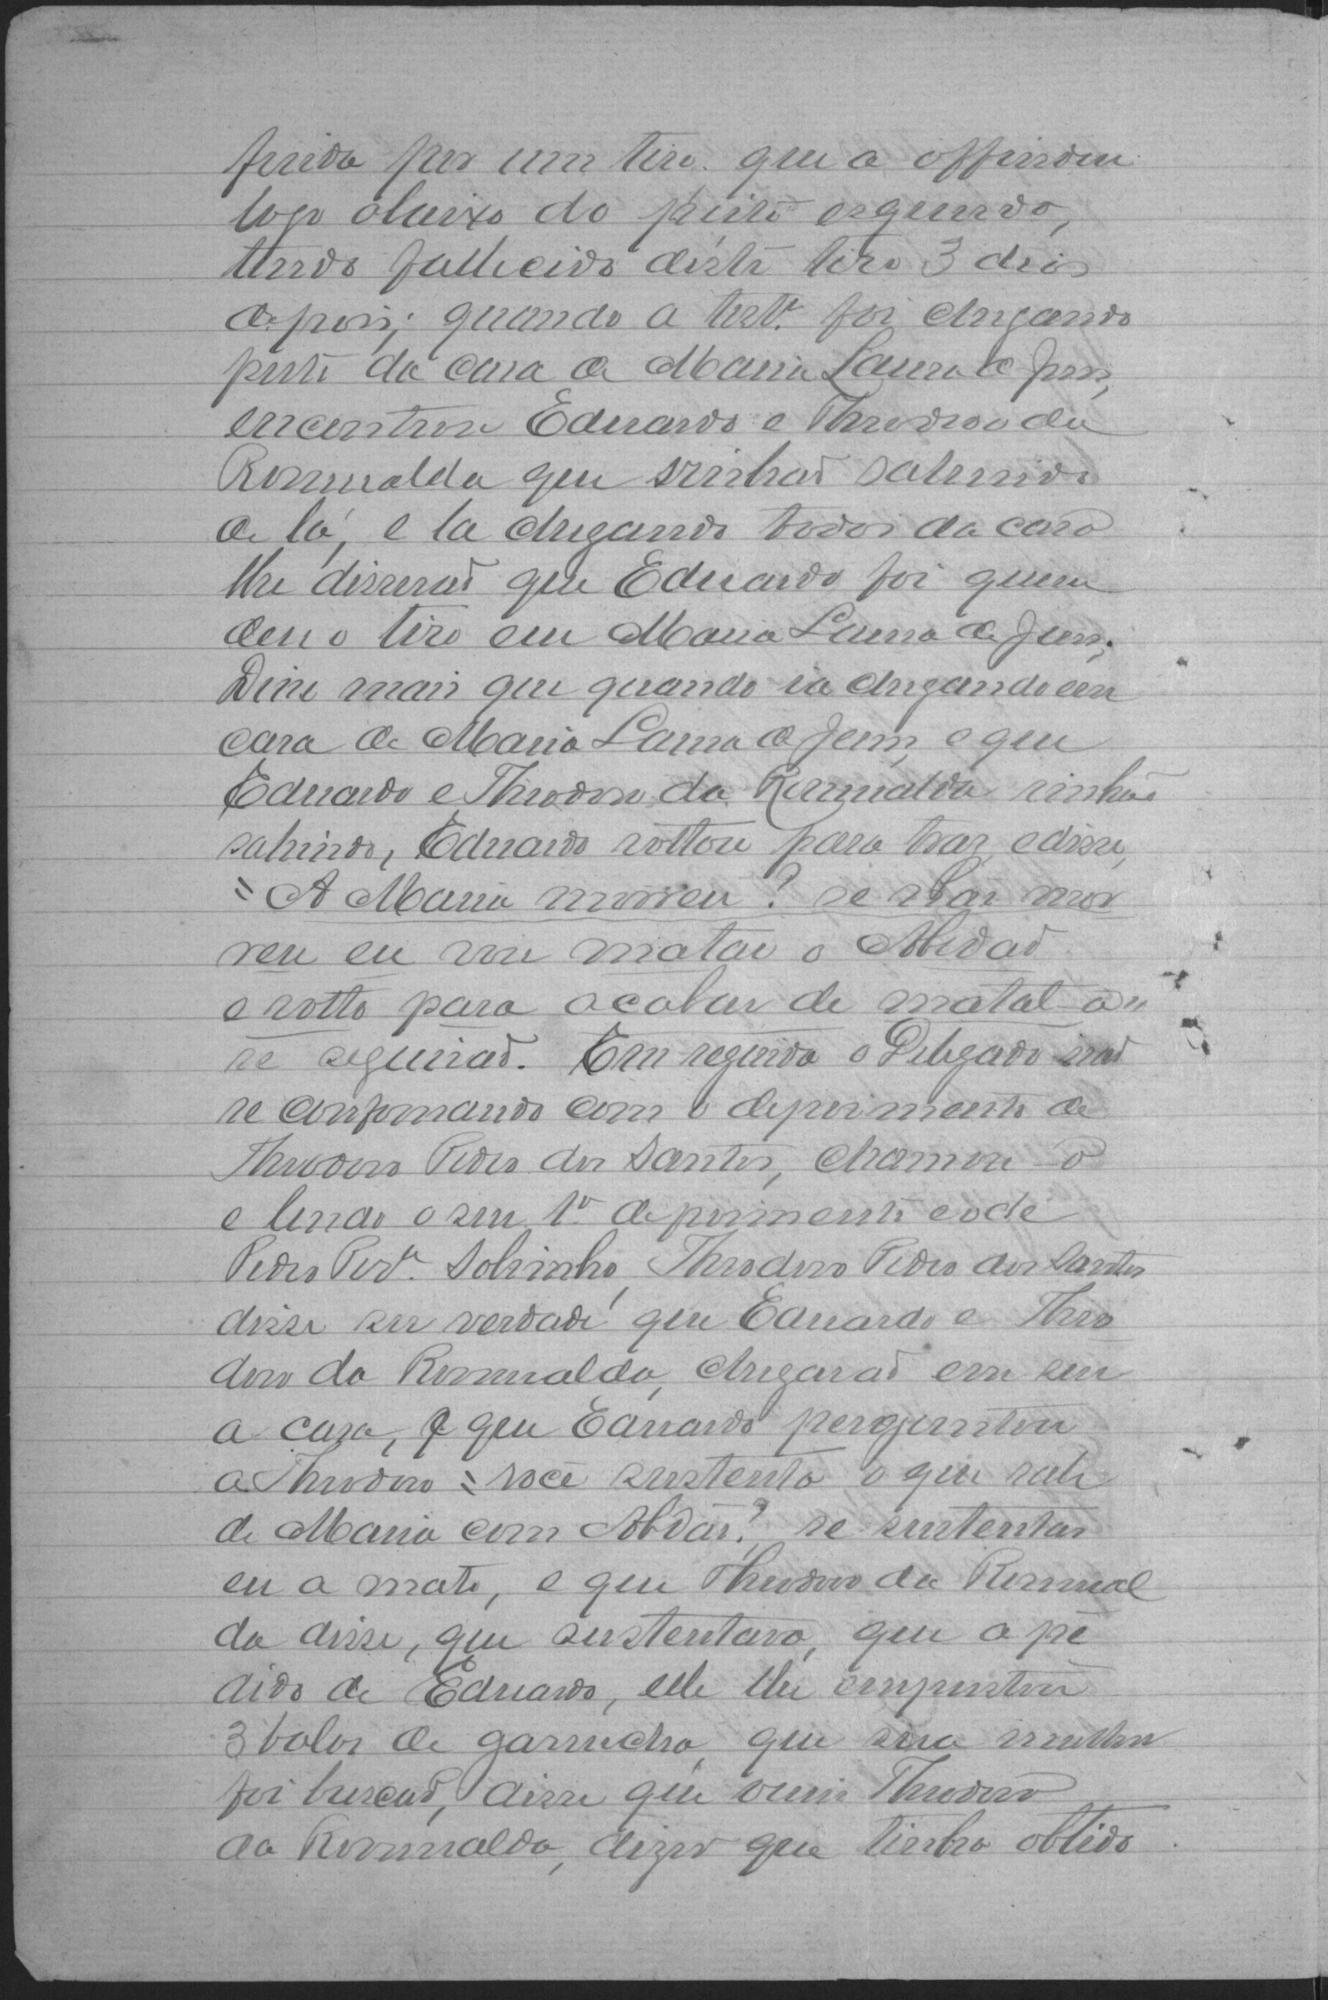 ferida por um tiro que a offendeu
logo abaixo do peito esquerdo,
tendo fallecido deste tiro 3 dias
depois; quando a testª. foi chegando
perto da casa de Maria Laura de Jesus,
encontrou Eduardo e Theodoro da
Romualda que vinhaõ sahindo
de lá, e la chegando todos da casa
lhe disseraõ que Eduardo foi quem
deu o tiro em Maria Laura de Jesus.
Disse mais que quando ia chegando em
casa de Maria Laura de Jesus, e que
Eduardo e Theodoro da Romualda vinhaõ
sahindo, Eduardo voltou para traz e disse,
"A Maria morreu? se naõ mor
reu eu vou matar o Abdaõ
e volto para acabar de matal-a"
se seguiraõ. Em seguida o Delegado naõ
se conformando com o depoimento de
Theodoro Pedro dos Santos, chamou-o
e lendo o seu 1º. depoimento e o de
Pedro Perª. Sobrinho, Theodoro Pedro dos Santos
disse ser verdade que Eduardo e Theo
doro da Romualda, chegaraõ em su
a casa, e que Eduardo perguntou
a Theodoro = voce sustenta o que sabe
de Maria com Abdaõ? se sustentar
eu a mato, e que Theodoro da Romual
da disse, que sustentava, que a pe
dido de Eduardo, elle lhe emprestou
3 balas de garrucha, que sua mulher
foi buscar, disse que ouvio Theodoro
da Romualda, dizer que tinha obtido